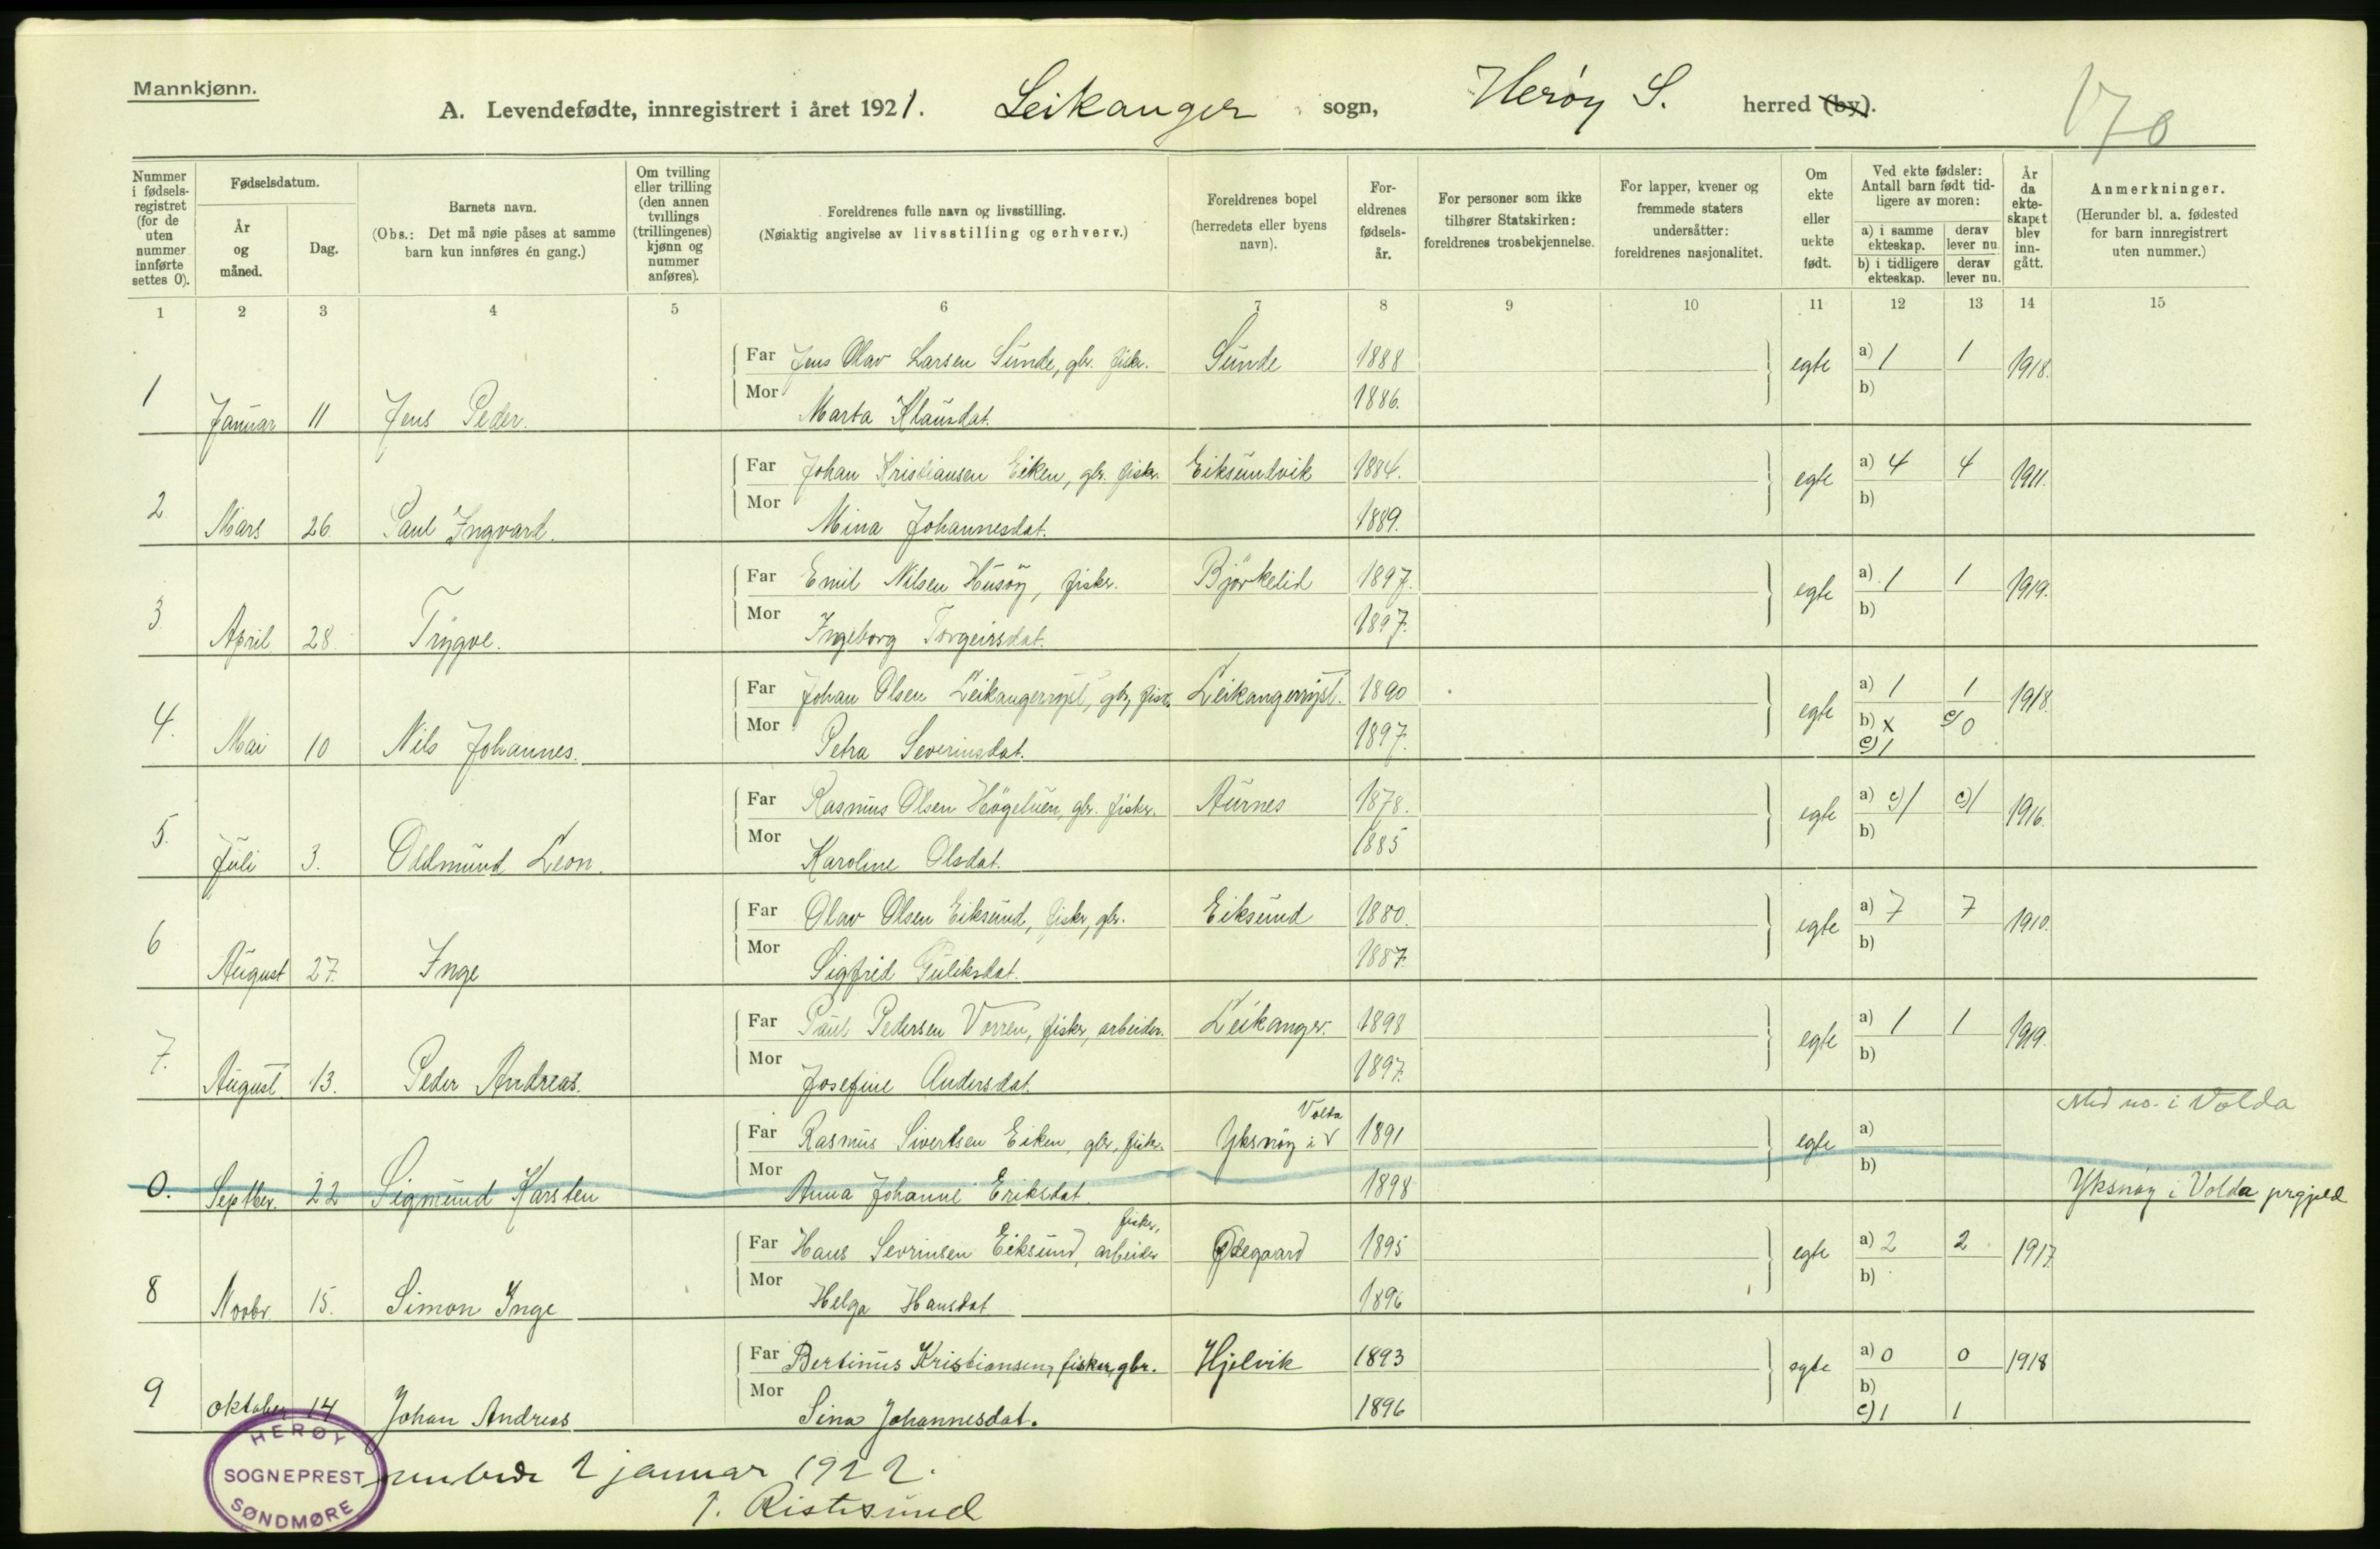 Mannkjønn.
A. Levendefødte, innregistrert i året 1921. Leikanger sogn, Herøy S. herred (by).
170
Nummer i fødsels-registret (for de uten nummer innførte settes 0).
Fødselsdatum.
År og måned.
Dag.
Barnets navn.
(Obs.: Det må nøie påses at samme barn kun innføres én gang.)
Om tvilling eller trilling (den annen tvillings (trillingenes) kjønn og nummer anføres).
Foreldrenes fulle navn og livsstilling.
(Nøiaktig angivelse av livsstilling og erhverv.)
Foreldrenes bopel (herredets eller byens navn).
For-eldrenes fødsels-år.
For personer som ikke tilhører Statskirken: foreldrenes trosbekjennelse.
For lapper, kvener og fremmede staters undersåtter: foreldrenes nasjonalitet.
Om ekte eller uekte født.
Ved ekte fødsler: Antall barn født tid-ligere av moren:
a) i samme ekteskap. derav lever nu
b) i tidligere ekteskap. derav lever nu.
År da ekte-skapet blev inn-gått.
Anmerkninger.
(Herunder bl. a. fødested for barn innregistrert uten nummer.)
1 2 3 4 5 6 7 8 9 10 11 12 13 14 15
Far Jens Olav Larsen Sunde, gbr. fisker. Sunde 1888 egte a) 1 1 1918.
1 Januar 11 Jens Peder. Mor Marta Klausdat. 1886. b)
Far Johan Kristiansen Eiken, gbr. fisker. Eiksundvik 1884. egte a) 4 4 1911.
2 Mars 26. Paul Ingvard. Mor Mina Johannesdat. 1889. b)
Far Emil Nilsen Husøy, fisker. Björkelid 1897. egte a) 1 1 1919.
3 April 28. Trygve. Mor Ingeborg Torgeirsdat. 1897. b)
Far Johan Olsen Leikangerryst, gbr, fisk. Leikangerryst. 1890 egte a) 1 1 1918.
4. Mai 10 Nils Johannes. Mor Petra Severinsdat. 1897. b) x c) 0
c) 1
Far Rasmus Olsen Högetuen, gbr. fisker. Aurnes 1878. egte a) c) 1 c) 1 1916.
5. Juli 3. Oddmund Leon. Mor Karoline Olsdat. 1885 b)
Far Olav Olsen Eiksund, fisker, gbr. Eiksund 1880. egte a) 7 7 1910.
6 August 27. Inge Mor Sigfrid Guleksdat. 1887. b)
Far Paul Pedersen Vorren, fisker, arbeider. Leikanger. 1898 egte a) 1 1 1919.
7. August. 13. Peder Andreas. Mor Josefine Andersdat. 1897. b)
Med no. i Volda
Far Rasmus Sivertsen Eiken, gbr, fisk. Yksnøy i V Volda 1891 egte a)
0. Septber. 22 Sigmund Karsten Mor Anna Johanne Eriksdat. 1898 b) Yksnøy i Volda prgjeld
Far Hans Sevrinsen Eiksund, fisker, arbeider Ødegaard 1895 egte a) 2 2 1917
8 Novbr. 15. Simon Inge Mor Helga Hansdat 1896 b)
Far Bertinus Kristiansen, fisker, gbr. Hjelvik 1893 egte a) 0 0 1918
9 oktober 14 Johan Andreas Mor Sina Johannesdat. 1896 b)
c) 1 1
HERØY SOGNEPREST SØNDMØRE
2 januar 1922.